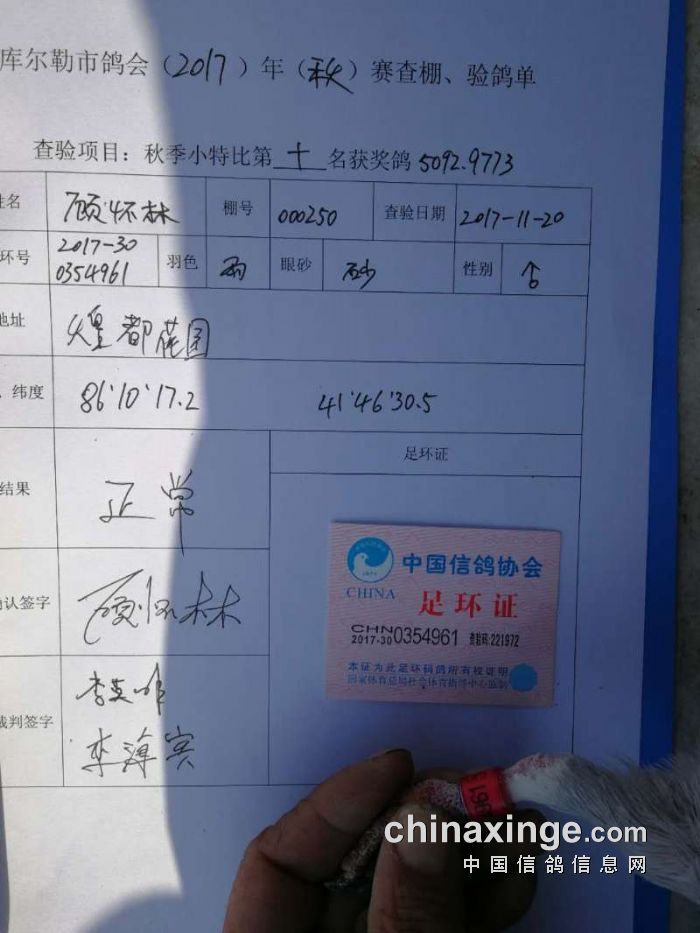 库尔勒市鸽会(2017)年(秋)赛查棚、验鸽单
查验项目:秋季小特比第十名获奖鸽5092.9773
姓名 顾怀林 棚号 000250 查验日期 2017-11-20
环号 2017-30 0354961 羽色 雨 眼砂 砂 性别
地址 煌都花园
纬度 86'10'17.2 41'46'30.5
结果 正常
足环证
认签字 顾怀林
裁判签字
中国信鸽协会
CHINA
足环证
CHN
2017-30 0354961 查验码:221972
本证为此足环码鸽所有权证明
国家体育总局社会体育指导中心监制
chinaxinge.com
中国信鸽信息网